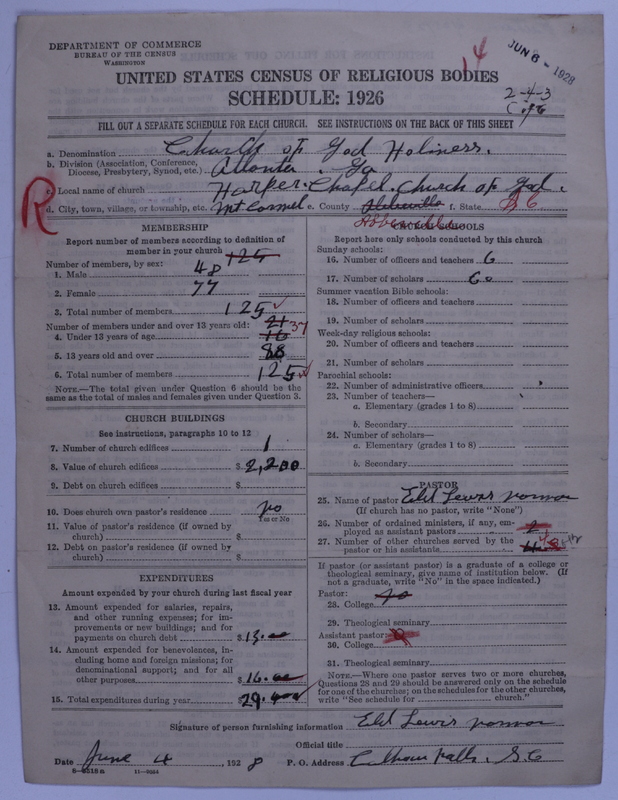 DEPARTMENT OF COMMERCE
BUREAU OF THE CENSUS
WASHINGTON
14
JUN 6 - 1928
UNITED STATES CENSUS OF RELIGIOUS BODIES
SCHEDULE: 1926
2-4-3
FILL OUT A SEPARATE SCHEDULE FOR EACH CHURCH. SEE INSTRUCTIONS ON THE BACK OF THIS SHEET
a. Denomination Church of God Holiness.
b. Division (Association, Conference, Diocese, Presbytery, Synod, etc.) Atlanta. Ga
R
c. Local name of church Harper. Chapel. Church of God.
d. City, town, village, or township, etc. Mt Carmel e. County Abbeville f. State S C
Abbeville
MEMBERSHIP
Report number of members according to definition of
member in your church 125
Number of members, by sex:
1. Male 48
2. Female 77
3. Total number of members 125
Number of members under and over 13 years old: 21 37
4. Under 13 years of age 16
5. 13 years old and over 88
6. Total number of members 125
NOTE.—The total given under Question 6 should be the
same as the total of males and females given under Question 3.
CHURCH BUILDINGS
See instructions, paragraphs 10 to 12
7. Number of church edifices 1
8. Value of church edifices $ 2,200
9. Debt on church edifices $
10. Does church own pastor's residence no
Yes or No
11. Value of pastor's residence (if owned by
church) $
12. Debt on pastor's residence (if owned by
church) $
EXPENDITURES
Amount expended by church during last fiscal year
13. Amount expended for salaries, repairs,
and other running expenses; for im-
provements or new buildings; and for
payments on church debt $ 13.00
14. Amount expended for benevolences, in-
cluding home and foreign missions; for
denominational support; and for all
other purposes $ 16.00
15. Total expenditures during year $ 29.00
CHURCH SCHOOLS
Report here only schools conducted by this church
Sunday schools:
16. Number of officers and teachers 6
17. Number of scholars 60
Summer vacation Bible schools:
18. Number of officers and teachers
19. Number of scholars
Week-day religious schools:
20. Number of officers and teachers
21. Number of scholars
Parochial schools:
22. Number of administrative officers
23. Number of teachers—
a. Elementary (grades 1 to 8)
b. Secondary
24. Number of scholars—
a. Elementary (grades 1 to 8)
b. Secondary
PASTOR
25. Name of pastor Eld Lewis
(If church has no pastor, write "None")
26. Number of ordained ministers, if any, em-
ployed as assistant pastors 2
27. Number of other churches served by the
pastor or his assistants 4
If pastor (or assistant pastor) is a graduate of a college or
theological seminary, give name of institution below. (If
not a graduate, write "No" in the space indicated.)
Pastor:
28. College no
29. Theological seminary
Assistant pastor:
30. College
31. Theological seminary
NOTE.—Where one pastor serves two or more churches,
Questions 28 and 29 should be answered only on the schedule
for one of the churches; on the schedules for the other churches,
write "See schedule for church."
Signature of person furnishing information Eld Lewis
Official title
Date June 4, 1928 P. O. Address Calhoun Falls, S.C
8-8518 a 11-9064